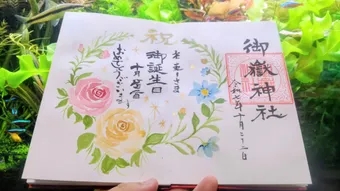 祝
御誕生日
十月吉日
おめでとうございます
御嶽神社
令和七年十月二十二日